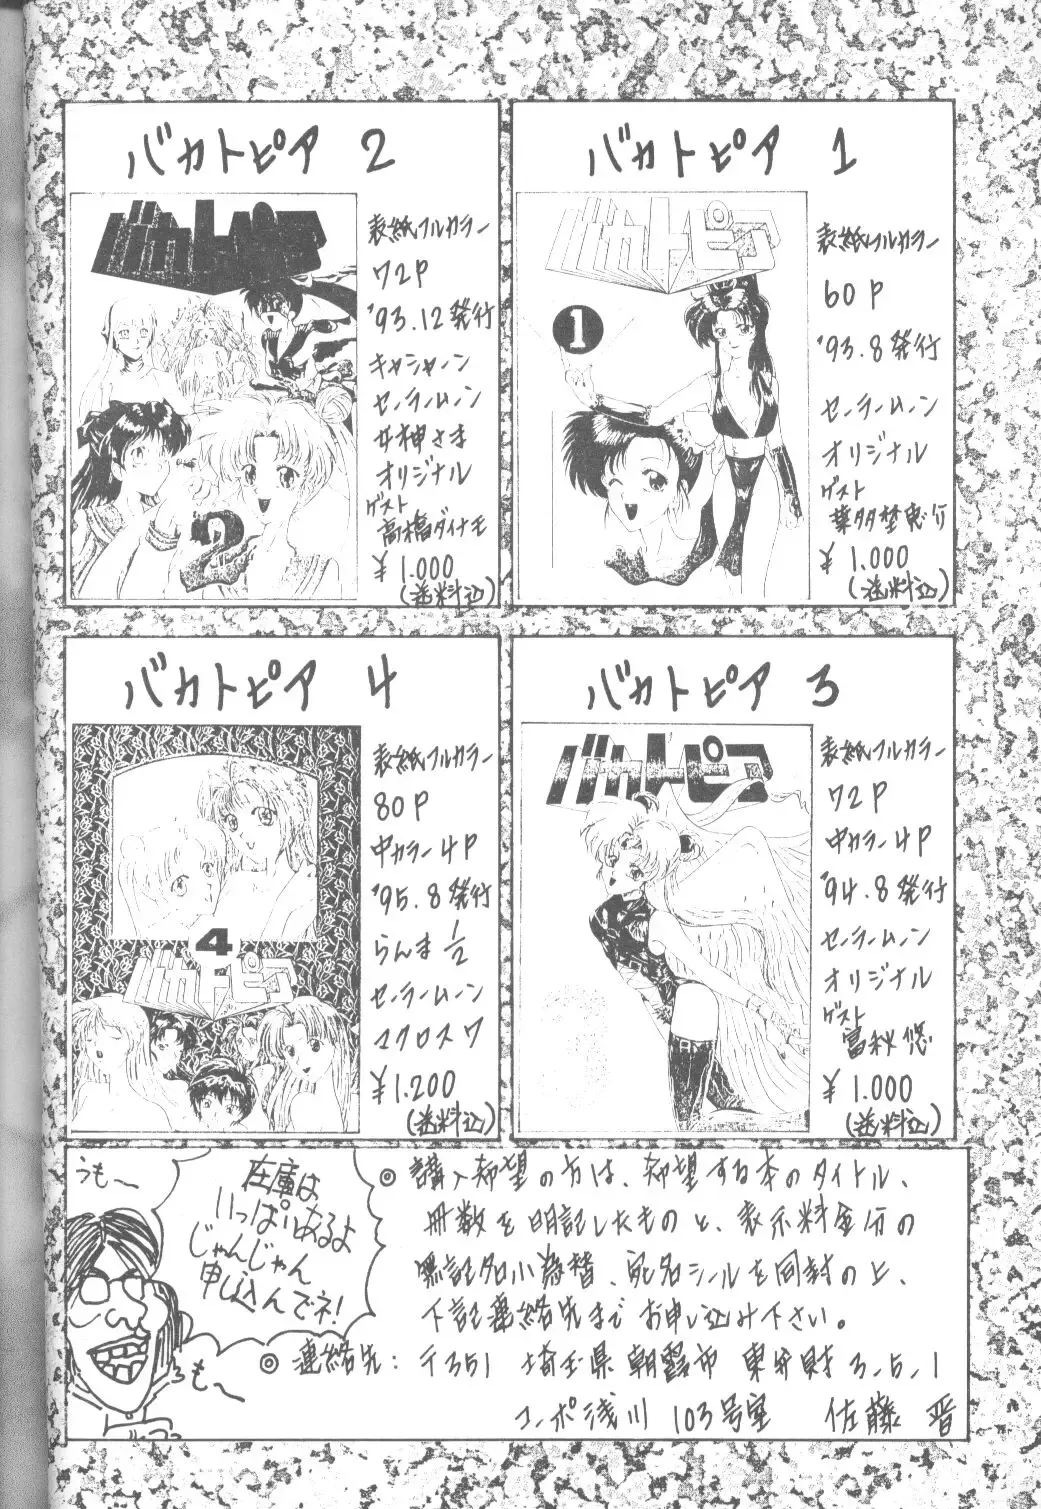 バカトピア 1
バカトピア
1
表紙フルカラー
60P
'93.8発行
セーラームーン
オリジナル
ゲスト
葉多埜恵介
¥1.000
(送料込)
バカトピア 2
バカトピア
2
表紙フルカラー
72P
'93.12発行
キャシャーン
セーラームーン
女神さま
オリジナル
ゲスト
高橋ダイナモ
¥1.000
(送料込)
バカトピア 3
バカトピア
表紙フルカラー
72P
中カラー4P
'94.8発行
セーラームーン
オリジナル
ゲスト
富秋悠
¥1.000
(送料込)
バカトピア 4
4
バカトピア
表紙フルカラー
80P
中カラー4P
'95.8発行
らんま1/2
セーラームーン
マクロス7
¥1.200
(送料込)
うも〜
在庫は
いっぱいあるよ
じゃんじゃん
申し込んでネ!
うも〜
◎購入希望の方は、希望する本のタイトル、
冊数を明記したものと、表示料金分の
無記名小為替、宛名シールを同封の上、
下記連絡先までお申し込み下さい。
◎連絡先:〒351 埼玉県朝霞市
3-5-1
コーポ浅川 103号室 佐藤 晋